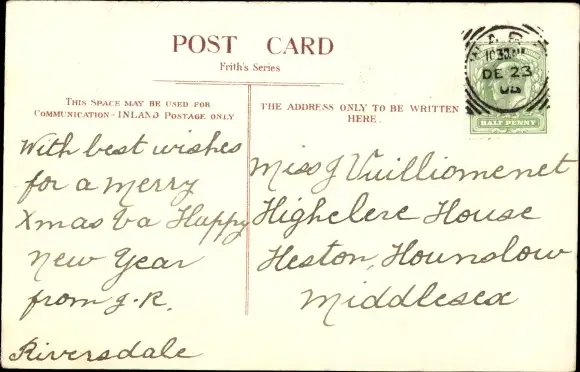 POST CARD
Frith's Series
THIS SPACE MAY BE USED FOR
COMMUNICATION—INLAND POSTAGE ONLY
THE ADDRESS ONLY TO BE WRITTEN
HERE.
DE 23
HALF PENNY
With best wishes
for a merry
Xmas & a Happy
New Year
from J.R.
Riversdale
Miss J Vuilliomenet
Highclere House
Heston, Hounslow
Middlesex